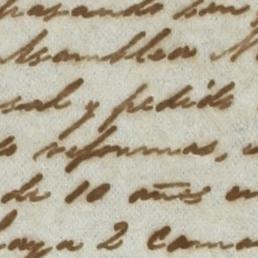 pasando han
Asamblea N
sal y pedido
reformas,
de 10 años en
haya 2 Cama